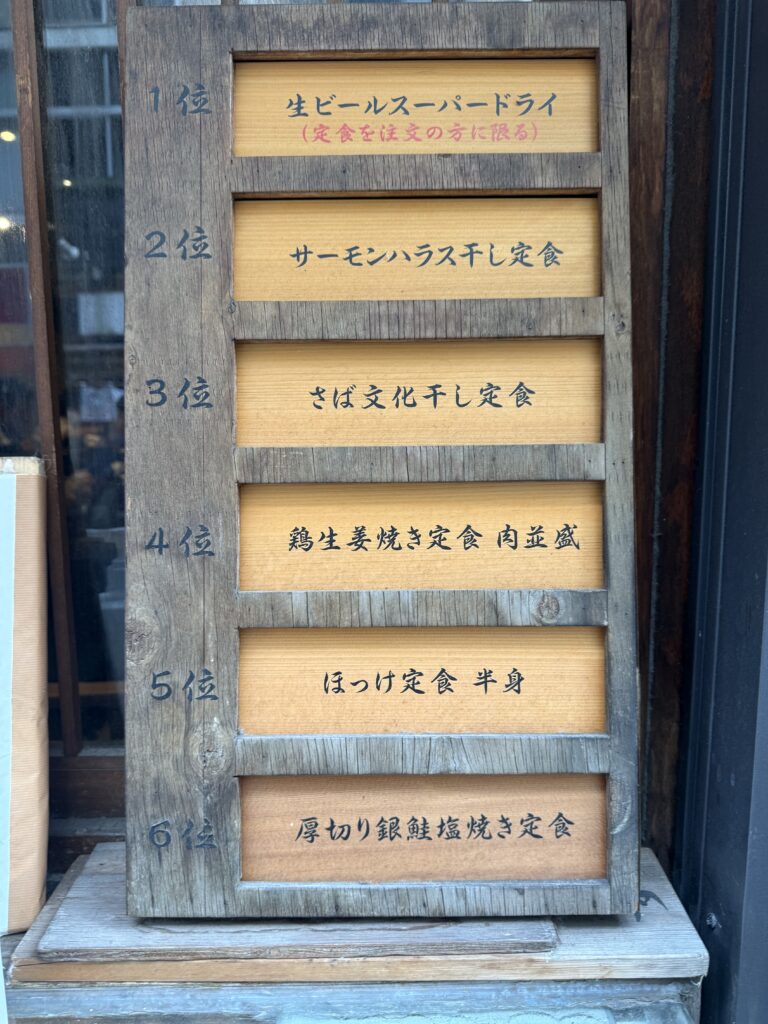 1位 生ビールスーパードライ
(定食を注文の方に限る)
2位 サーモンハラス干し定食
3位 さば文化干し定食
4位 鶏生姜焼き定食 肉並盛
5位 ほっけ定食 半身
6位 厚切り銀鮭塩焼き定食